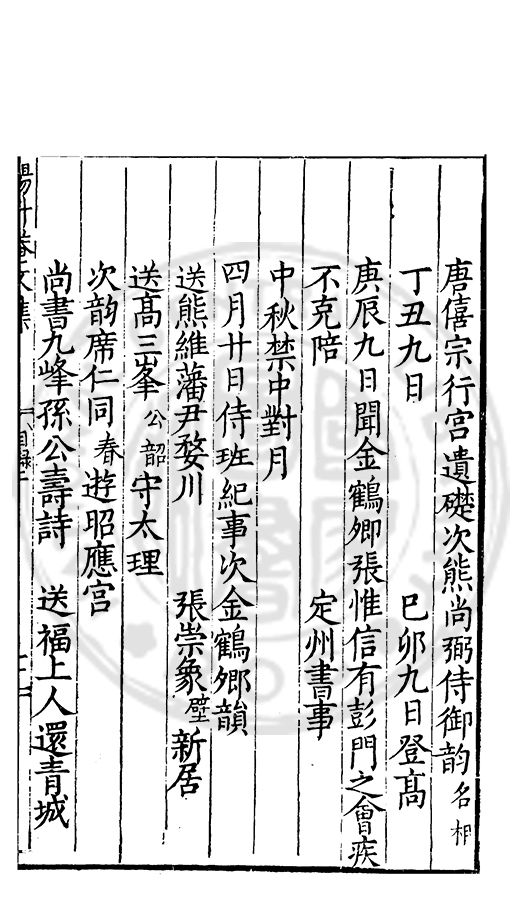 唐僖宗行宮遺礎次熊尚弼侍御韵名相
丁丑九日　巳卯九日登髙
庚辰九日聞金鶴卿張惟信有彭門之會疾
不克陪　定州書事
中秋禁中對月
四月廿日侍班紀事次金鶴卿韻
送熊維藩尹婺川　張崇象壁新居
送髙三峯公韶守太理
次韵席仁同春遊昭應宮
尚書九峰孫公壽詩　送福上人還青城